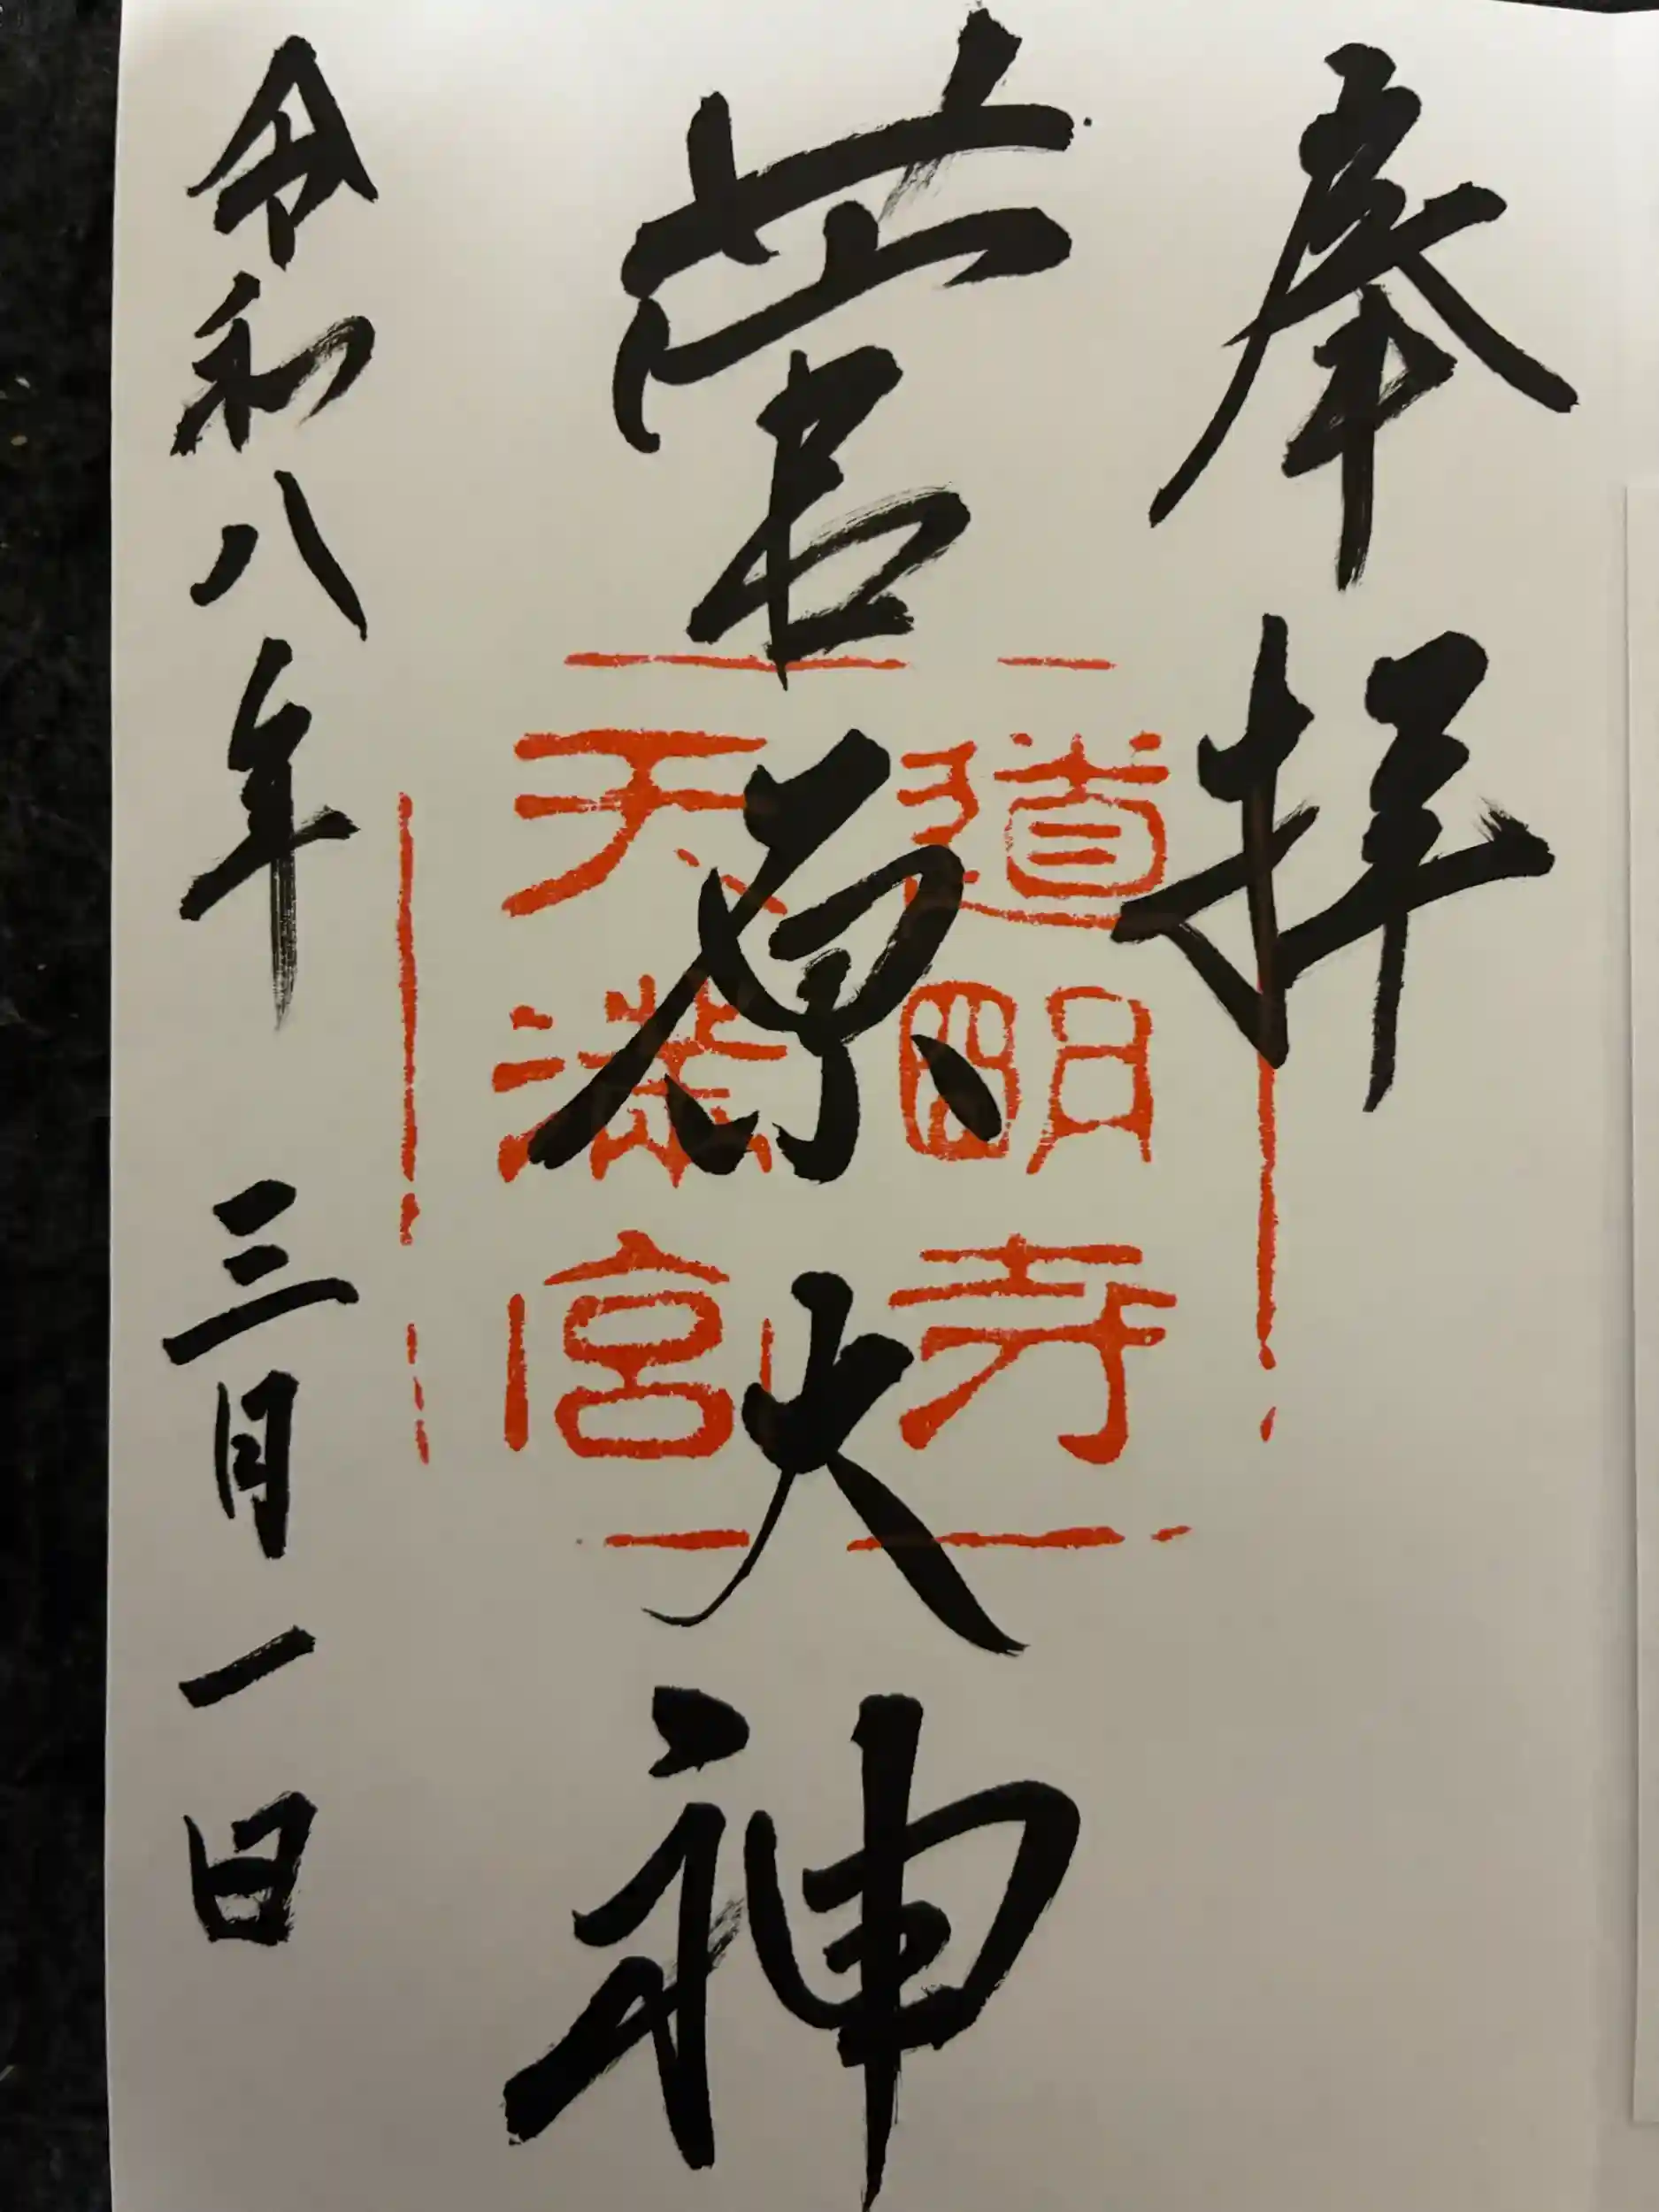 奉拝
菅原大神
道明寺
天満宮
令和八年三月一日